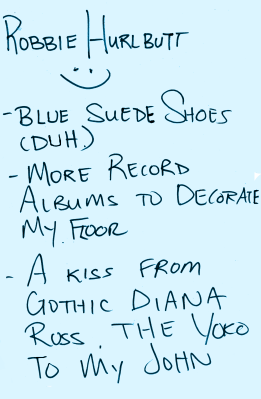 ROBBIE HURLBUTT
- BLUE SUEDE SHOES
(DUH.)
- MORE RECORD
ALBUMS TO DECORATE
MY FLOOR
- A KISS FROM
GOTHIC DIANA
ROSS. THE YOKO
TO MY JOHN